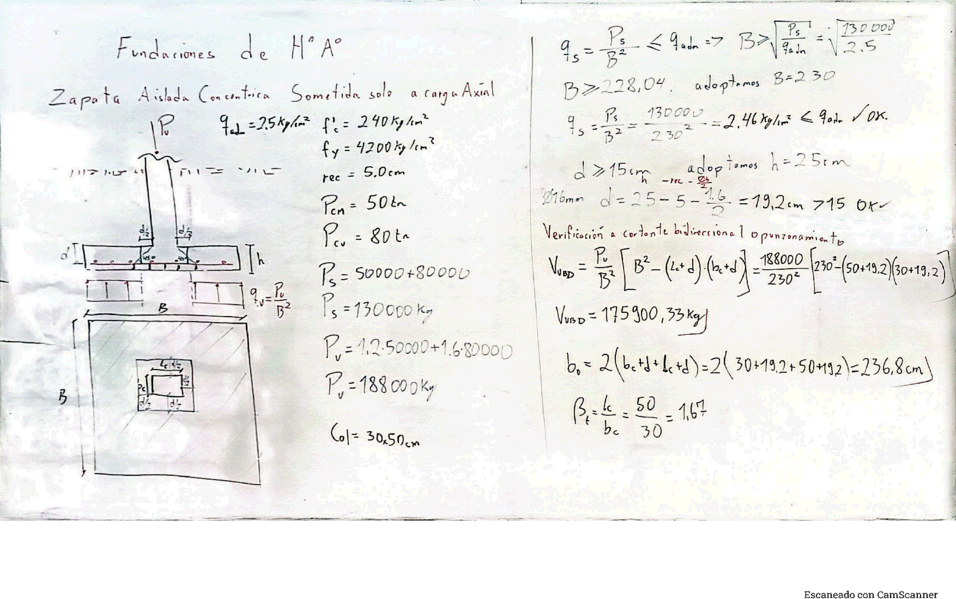 Fundaciones de H°A°
Zapata Aislada Concentrica Sometida solo a carga Axial
Pu
q adm = 2.5 kg/cm² f'c = 240 kg/cm²
fy = 4200 kg/cm²
rec = 5.0cm
Pcm = 50 tn
Pcv = 80 tn
Ps = 50000+80000
Ps = 130000 kg
Pu = 1.2·50000+1.6·80000
Pu = 188000 kg
Col = 30x50cm
d/2 d/2
d h
qu = Pu/B²
B
B
Lc d/2
bc d/2
d/2 d/2
qs = Ps/B² ≤ qadm => B ≥ √(Ps/qadm) = √(130000/2.5)
B ≥ 228,04. adoptamos B=230
qs = Ps/B² = 130000/230² = 2.46 kg/cm² ≤ qadm ✓ OK.
d ≥ 15cm adoptamos h = 25cm
h - rec - Ø/2
Ø16mm d = 25 - 5 - 1.6/2 = 19,2cm > 15 OK ✓
Verificación a cortante bidireccional o punzonamiento
VUBD = Pu/B² [B² - (Lc+d)·(bc+d)] = 188000/230² [230² - (50+19.2)(30+19,2)]
VUBD = 175900,33 kg
bo = 2(bc+d+Lc+d) = 2(30+19.2+50+19.2) = 236,8cm
βt = Lc/bc = 50/30 = 1,67
Escaneado con CamScanner